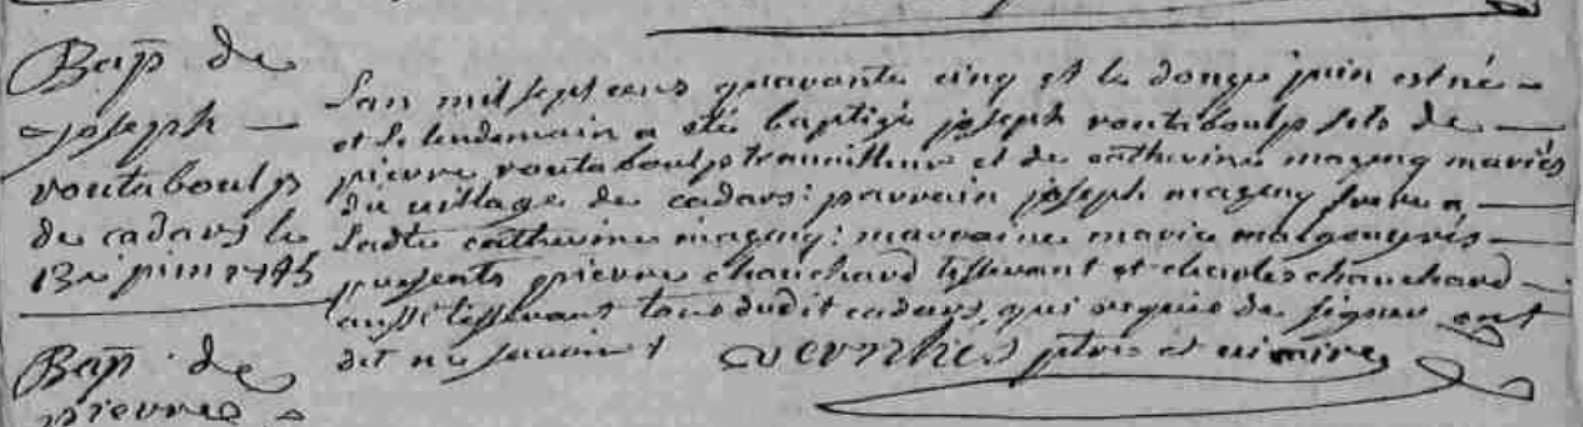 Bap de
joseph
voutaboulp
de cadars le
13e juin 1745
Lan mil sept cens quarante cinq et le douze juin est né
et le lendemain a eté baptizé joseph voutaboulp fils de
pierre voutaboulp travailleur et de catherine mazeng mariés
du village de cadars: parrain joseph mazeng frere a
ladte catherine mazeng: marraine marie
presents pierre chauchard tisserant et charles chauchard
aussi tisserant tous dudit cadars, qui requis de signer ont
dit ne savoir
vernhes ptre et vicaire
Bap de
pierre